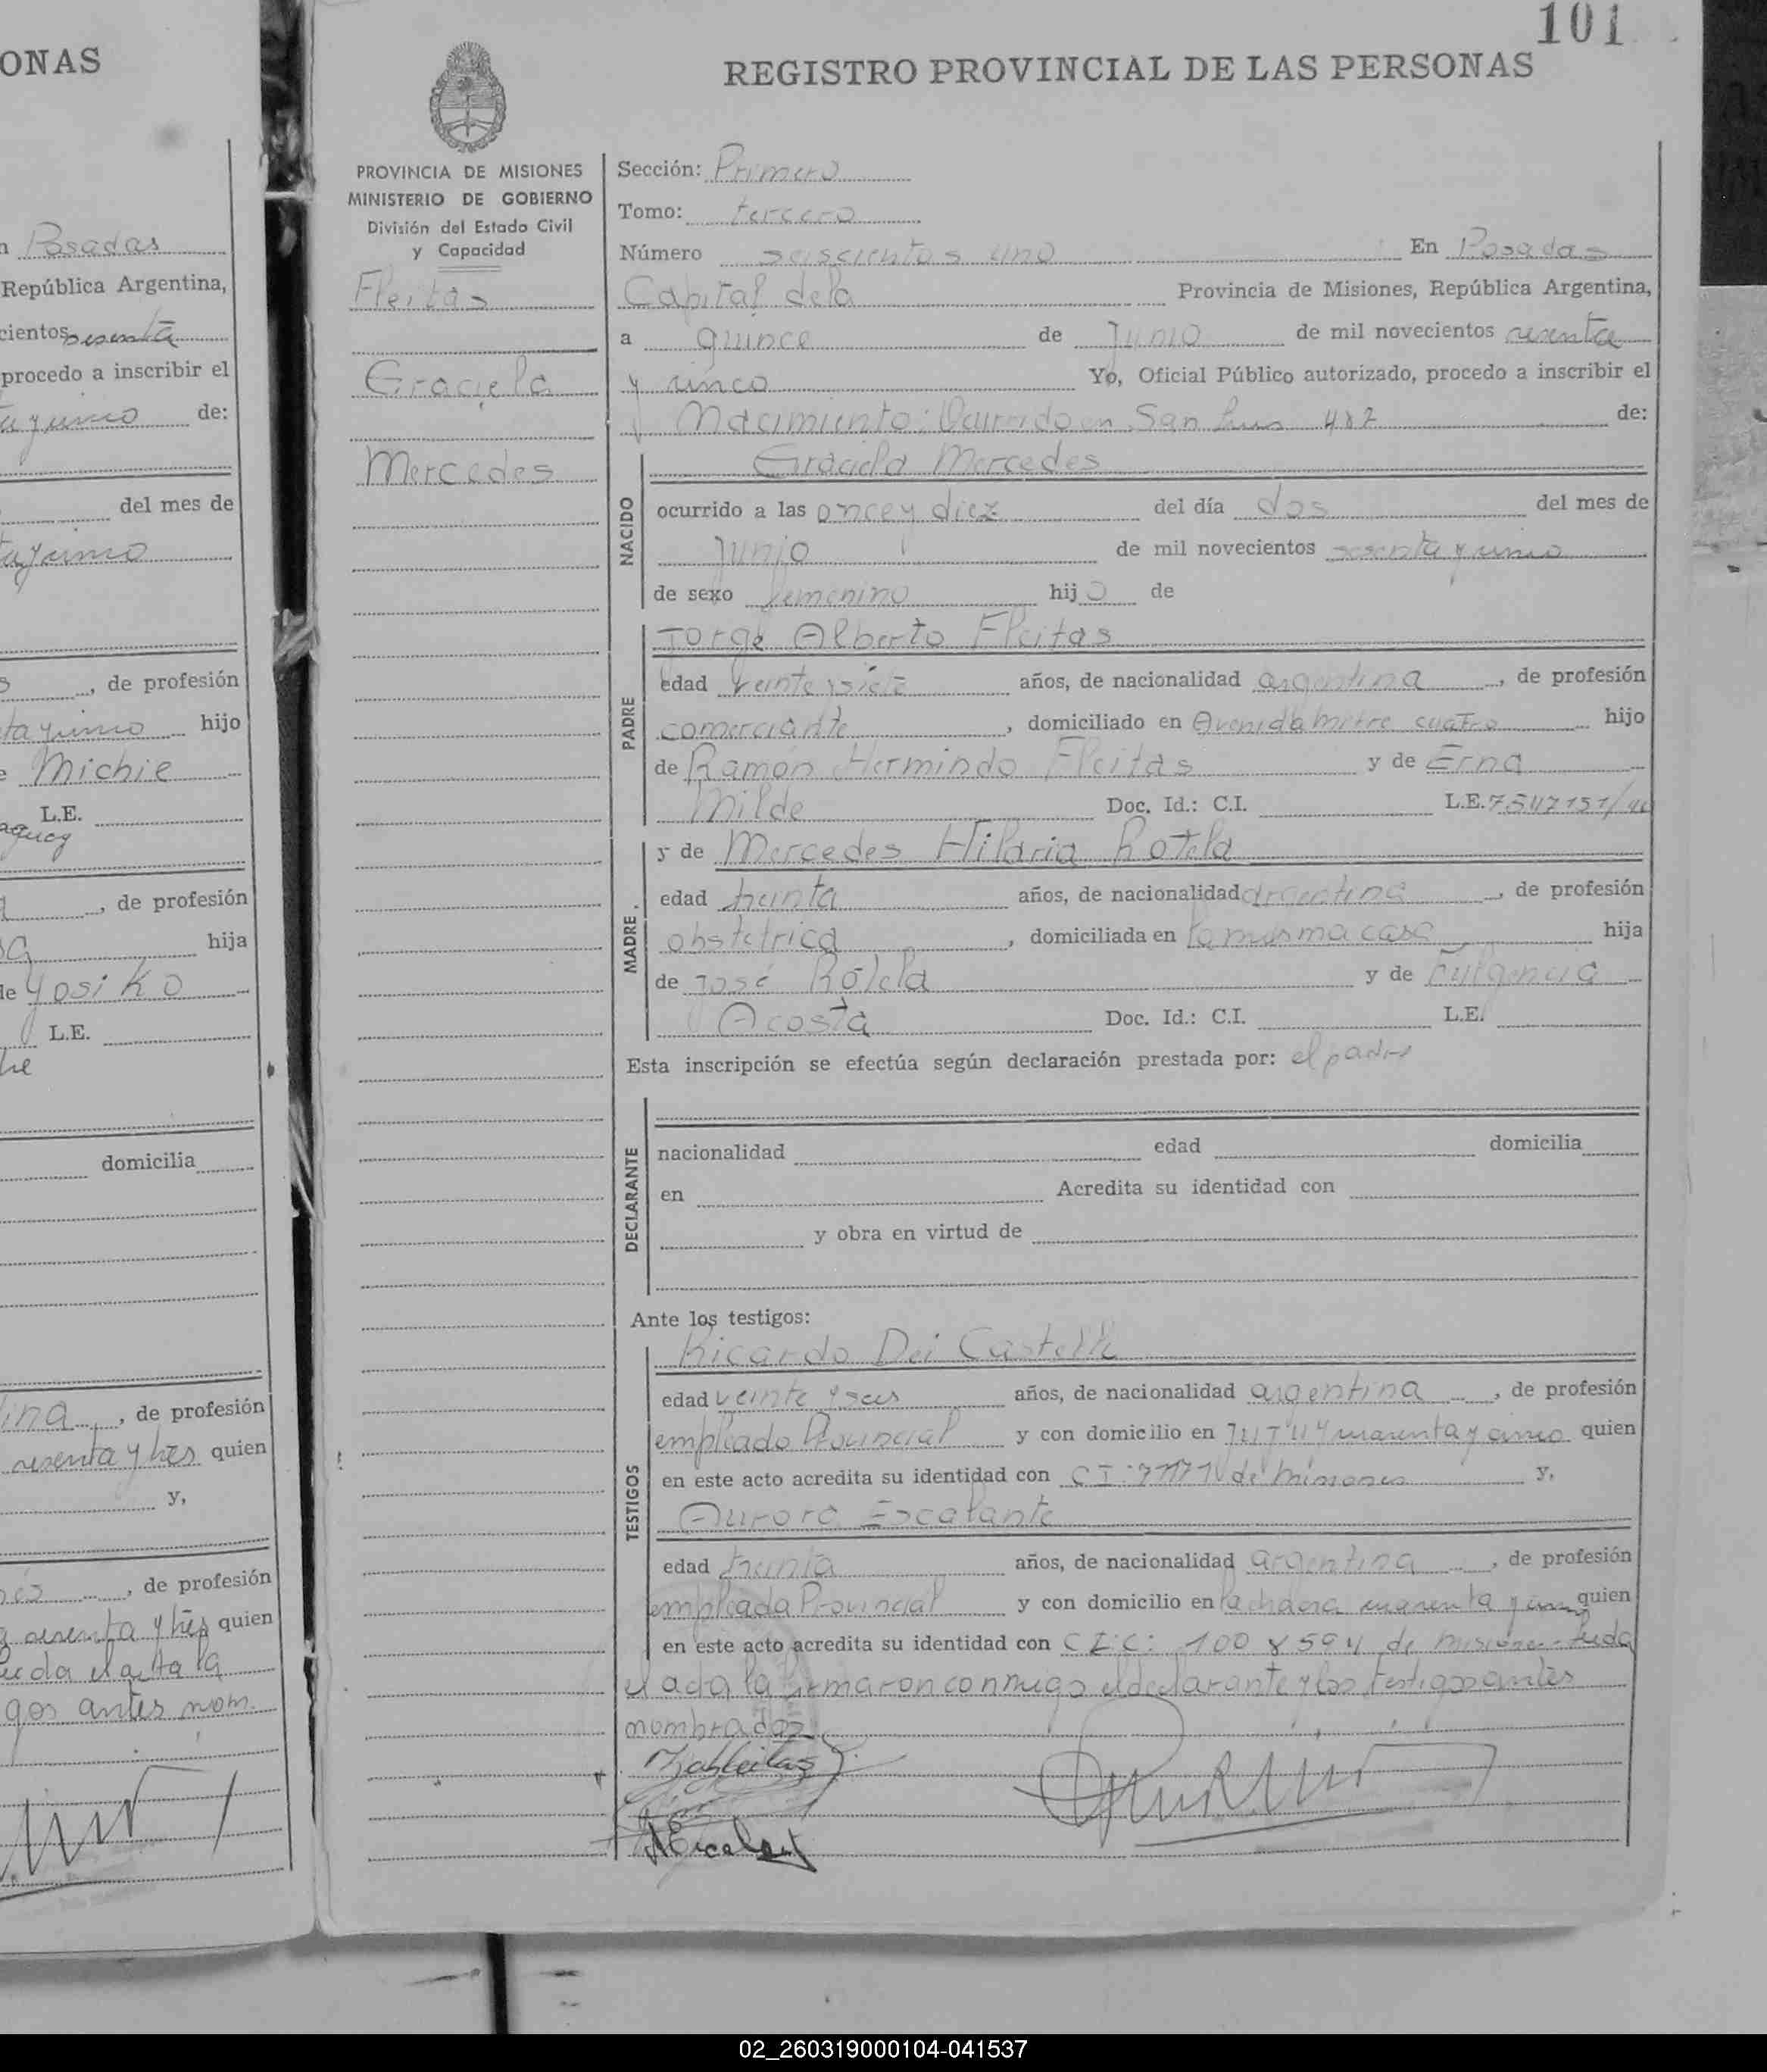 ONAS
Posadas
República Argentina,
cientos sesenta
procedo a inscribir el
de:
del mes de
de profesión
hijo
Michie
L.E.
de profesión
hija
de Yosiko
L.E.
domicilia
de profesión
sesenta y tres quien
y,
de profesión
sesenta y tres quien
gos antes nom.
101
REGISTRO PROVINCIAL DE LAS PERSONAS
PROVINCIA DE MISIONES
MINISTERIO DE GOBIERNO
División del Estado Civil
y Capacidad
Fleitas
Graciela
Mercedes
Sección: Primera
Tomo: tercero
Número seiscientos uno En Posadas
Capital de la Provincia de Misiones, República Argentina,
a quince de Junio de mil novecientos sesenta
y cinco Yo, Oficial Público autorizado, procedo a inscribir el
Nacimiento: Ocurrido en San Luis 487 de:
NACIDO
Graciela Mercedes
ocurrido a las once y diez del día dos del mes de
Junio de mil novecientos sesenta y uno
de sexo femenino hija de
PADRE
Jorge Alberto Fleitas
edad veinte y siete años, de nacionalidad argentina, de profesión
comerciante, domiciliado en Avenida Mitre cuatro hijo
de Ramón Hermindo Fleitas y de Erna
Milde Doc. Id.: C.I. L.E.
MADRE
y de Mercedes Hilaria Rotela
edad treinta años, de nacionalidad argentina, de profesión
obstetrica, domiciliada en la misma casa hija
de José Rotela y de Fulgencia
Acosta Doc. Id.: C.I. L.E.
Esta inscripción se efectúa según declaración prestada por: el padre
DECLARANTE
nacionalidad edad domicilia
en Acredita su identidad con
y obra en virtud de
Ante los testigos:
TESTIGOS
Ricardo Dei Castelli
edad veinte y seis años, de nacionalidad argentina, de profesión
empleado Provincial y con domicilio en JUJUY cuarenta y cinco quien
en este acto acredita su identidad con C I: de Misiones y,
Aurora Escalante
edad treinta años, de nacionalidad argentina, de profesión
empleada Provincial y con domicilio en la chacra cuarenta y quien
en este acto acredita su identidad con de Misiones. Leida
el acta la firmaron conmigo el declarante y los testigos antes
nombrados
02_260319000104-041537